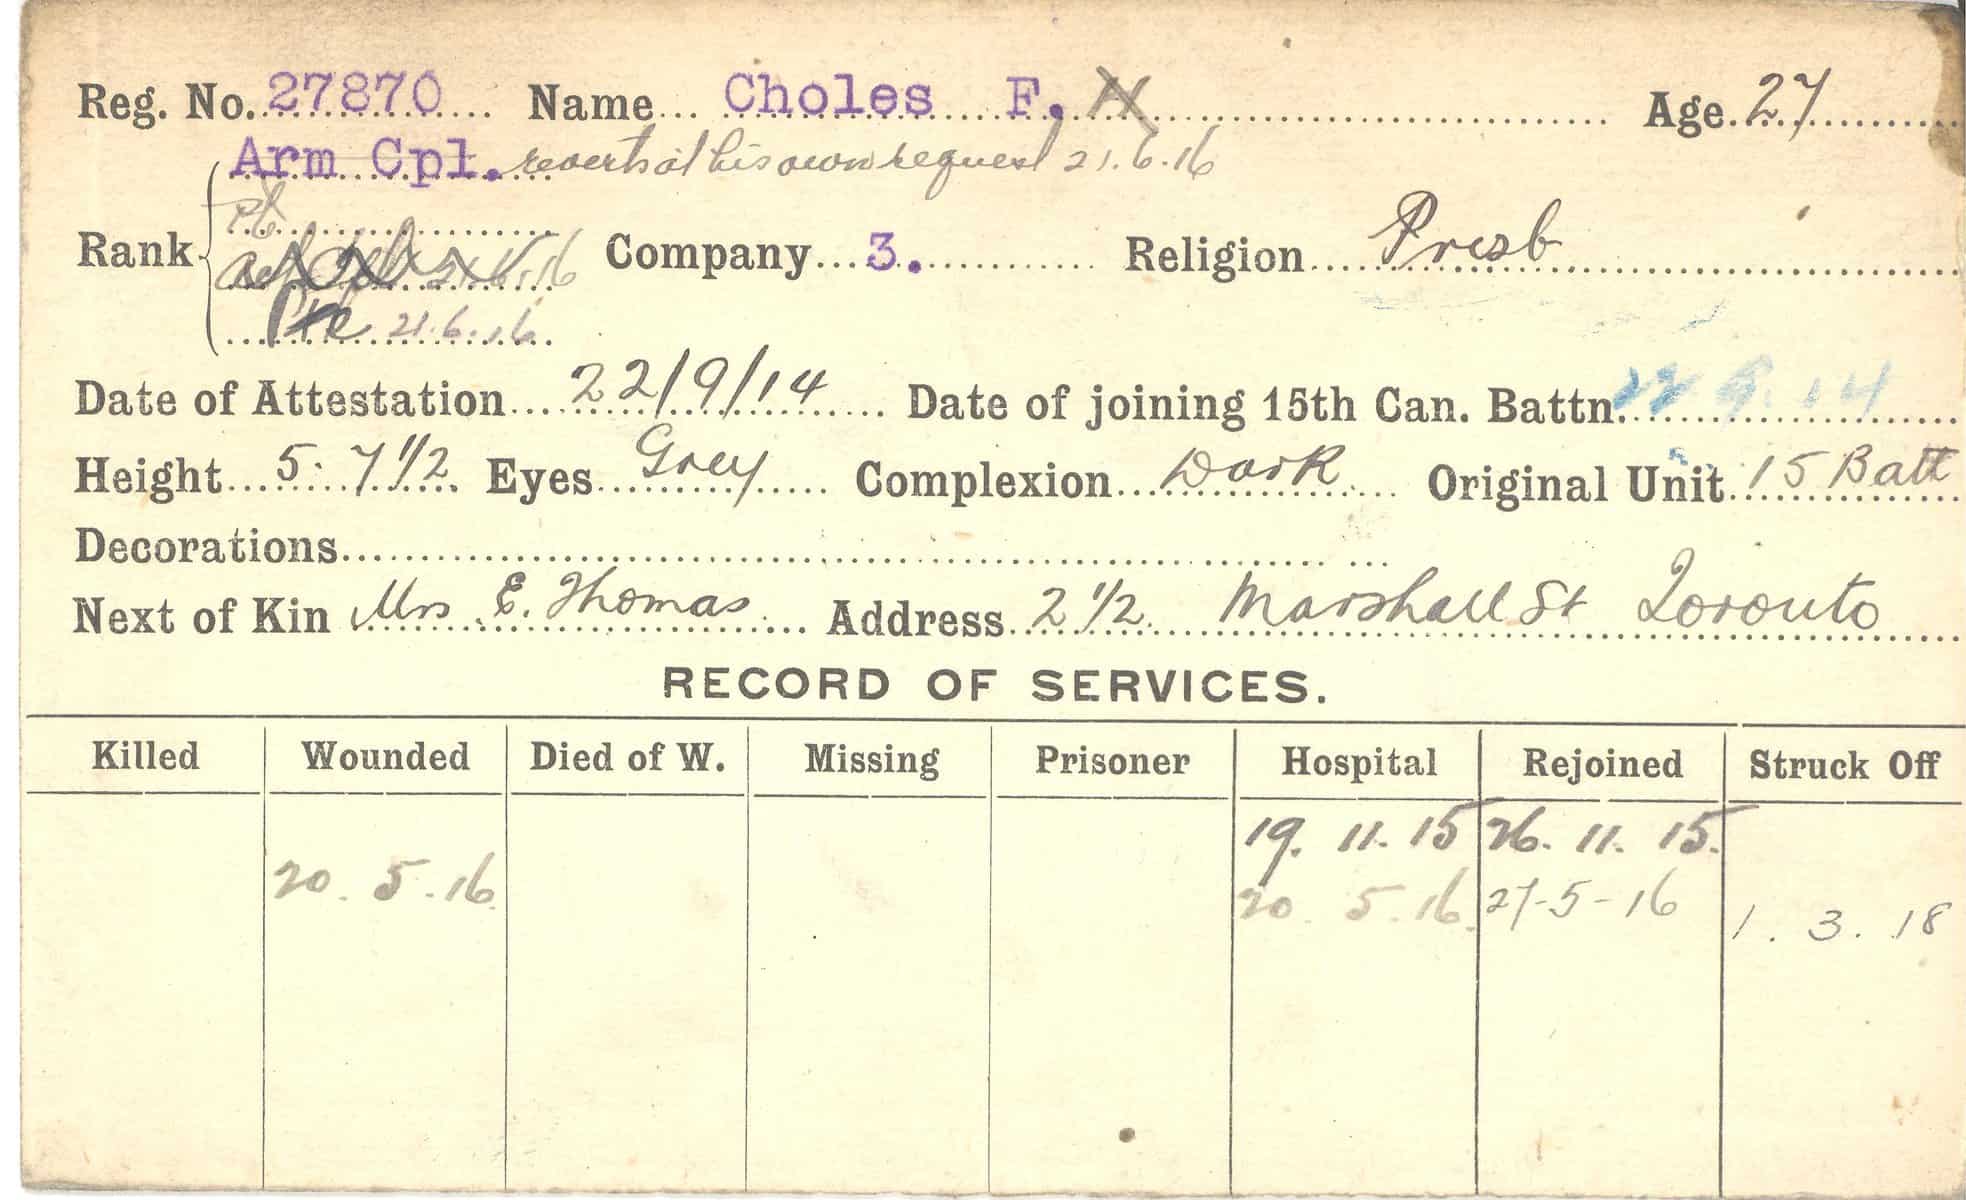 Reg. No. 27870 Name Choles F. H Age 27
Arm Cpl. reverts at his own request 21.6.16
Rank Company 3. Religion Presb
21.6.16
Pte 21.6.16
Date of Attestation 22/9/14 Date of joining 15th Can. Battn. 22 9. 14
Height 5. 7 1/2 Eyes Grey Complexion Dark Original Unit 15 Batt
Decorations
Next of Kin Mrs E. Thomas Address 2 1/2 Marshall St Toronto
RECORD OF SERVICES.
Killed Wounded Died of W. Missing Prisoner Hospital Rejoined Struck Off
19. 11. 15 26. 11. 15.
20. 5. 16. 20. 5. 16. 27-5-16 1. 3. 18